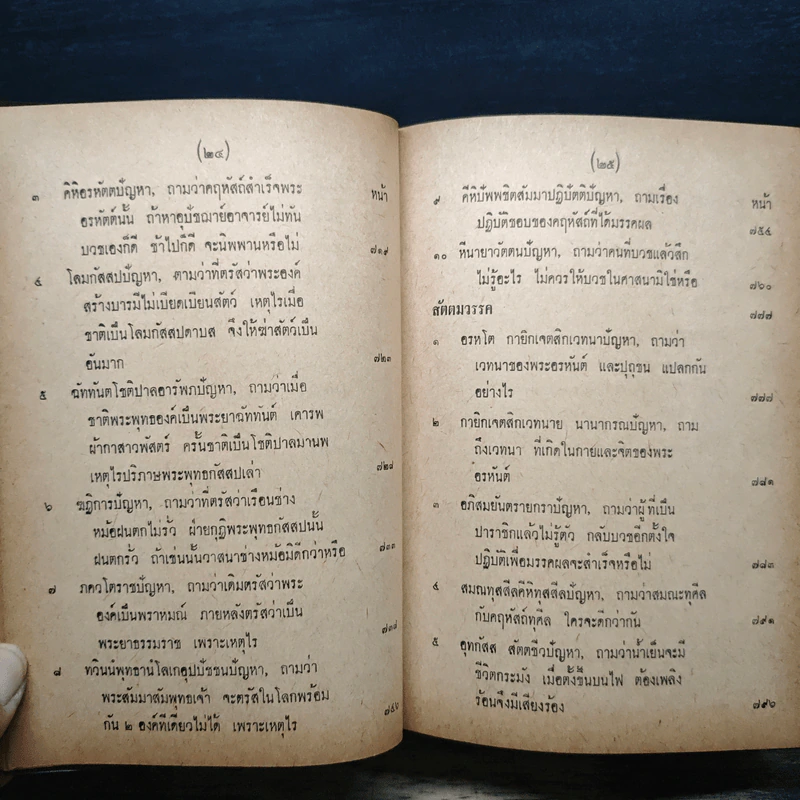 (๒๔)
หน้า
๓ คิหิอรหัตตปัญหา, ถามว่าคฤหัสถ์สำเร็จพระ
อรหัตต์นั้น ถ้าหาอุปัชฌาย์อาจารย์ไม่ทัน
บวชเองก็ดี ช้าไปก็ดี จะนิพพานหรือไม่ ๗๑๙
๔ โลมกัสสปปัญหา, ถามว่าที่ตรัสว่าพระองค์
สร้างบารมีไม่เบียดเบียนสัตว์ เหตุไรเมื่อ
ชาติเป็นโลมกัสสปดาบส จึงให้ฆ่าสัตว์เป็น
อันมาก ๗๒๓
๕ ฉัททันตโชติปาลอารัพภปัญหา, ถามว่าเมื่อ
ชาติพระพุทธองค์เป็นพระยาฉัททันต์ เคารพ
ผ้ากาสาวพัสตร์ ครั้นชาติเป็นโชติปาลมานพ
เหตุไรปริภาษพระพุทธกัสสปเล่า ๗๒๘
๖ ฆฏิการปัญหา, ถามว่าที่ตรัสว่าเรือนช่าง
หม้อฝนตกไม่รั่ว ฝ่ายกุฎิพระพุทธกัสสปนั้น
ฝนตกรั่ว ถ้าเช่นนั้นวาสนาช่างหม้อมิดีกว่าหรือ ๗๓๓
๗ ภควโตราชปัญหา, ถามว่าเดิมตรัสว่าพระ
องค์เป็นพราหมณ์ ภายหลังตรัสว่าเป็น
พระยาธรรมราช เพราะเหตุไร ๗๓๘
๘ ทวินนํพุทธานํโลเกอุปปัชชนปัญหา, ถามว่า
พระสัมมาสัมพุทธเจ้า จะตรัสในโลกพร้อม
กัน ๒ องค์ทีเดียวไม่ได้ เพราะเหตุไร ๗๔๖
(๒๕)
หน้า
๙ คีหิปัพพชิตสัมมาปฏิปัตติปัญหา, ถามเรื่อง
ปฏิบัติชอบของคฤหัสถ์ที่ได้มรรคผล ๗๕๔
๑๐ หีนายาวัตตนปัญหา, ถามว่าคนที่บวชแล้วสึก
ไม่รู้อะไร ไม่ควรให้บวชในศาสนามิใช่หรือ ๗๖๐
สัตตมวรรค ๗๗๗
๑ อรหโต กายิกเจตสิกเวทนาปัญหา, ถามว่า
เวทนาของพระอรหันต์ และปุถุชน แปลกกัน
อย่างไร ๗๗๗
๒ กายิกเจตสิกเวทนาย นานากรณปัญหา, ถาม
ถึงเวทนา ที่เกิดในกายและจิตของพระ
อรหันต์ ๗๘๑
๓ อภิสมยันตรายกราปัญหา, ถามว่าผู้ที่เป็น
ปาราชิกแล้วไม่รู้ตัว กลับบวชอีกตั้งใจ
ปฏิบัติเพื่อมรรคผลจะสำเร็จหรือไม่ ๗๘๓
๔ สมณทุสสีลคีหิทุสสีลปัญหา, ถามว่าสมณะทุศีล
กับคฤหัสถ์ทุศีล ใครจะดีกว่ากัน ๗๙๑
๕ อุทกัสส สัตตชีวปัญหา, ถามว่าน้ำเย็นจะมี
ชีวิตกระมัง เมื่อตั้งขึ้นบนไฟ ต้องเพลิง
ร้อนจึงมีเสียงร้อง ๗๙๖